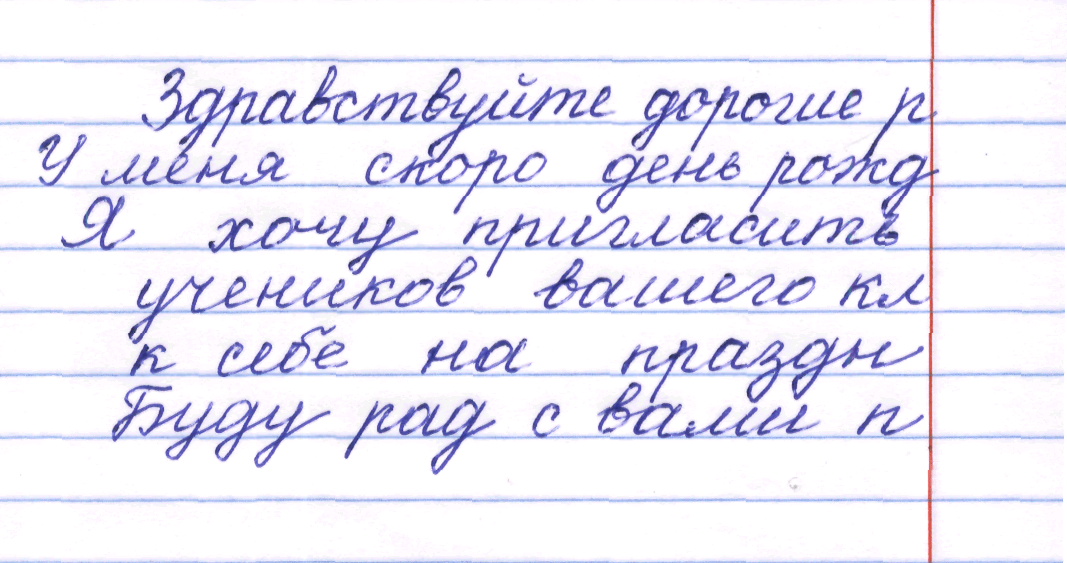 Здравствуйте дорогие р
У меня скоро день рожд
Я хочу пригласить
учеников вашего кл
к себе на праздн
Буду рад с вами п